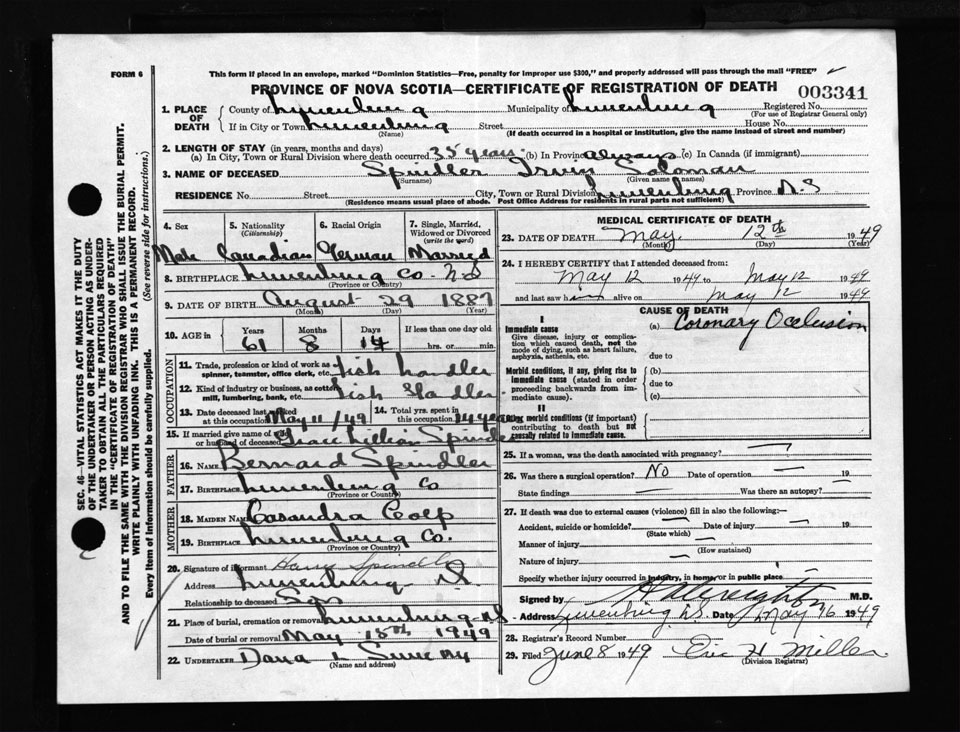 FORM 6
This form if placed in an envelope, marked "Dominion Statistics—Free, penalty for improper use $300," and properly addressed will pass through the mail "FREE"
PROVINCE OF NOVA SCOTIA—CERTIFICATE OF REGISTRATION OF DEATH
003341
1. PLACE OF DEATH County of Lunenburg Municipality of Lunenburg Registered No.
(For use of Registrar General only)
If in City or Town Lunenburg Street House No.
(Name) (If death occurred in a hospital or institution, give the name instead of street and number)
2. LENGTH OF STAY (in years, months and days)
(a) In City, Town or Rural Division where death occurred 35 years (b) In Province always (c) In Canada (if immigrant)
3. NAME OF DECEASED Spindler Irvin Soloman
(Surname) (Given name or names)
RESIDENCE No. Street City, Town or Rural Division Lunenburg Province N.S
(Residence means usual place of abode. Post Office Address for residents in rural parts not sufficient)
4. Sex 5. Nationality (Citizenship) 6. Racial Origin 7. Single, Married, Widowed or Divorced (write the word)
Male Canadian German Married
8. BIRTHPLACE Lunenburg Co. N.S
(Province or Country)
9. DATE OF BIRTH August 29 1887
(Month) (Day) (Year)
10. AGE in Years Months Days If less than one day old
61 8 14 hrs. or min.
OCCUPATION
11. Trade, profession or kind of work as spinner, teamster, office clerk, etc. Fish handler
12. Kind of industry or business, as cotton mill, lumbering, bank, etc. Fish Handler
13. Date deceased last worked at this occupation May 11/49 14. Total yrs. spent in this occupation 14 years
15. If married give name of wife or husband of deceased Grace Lillian Spindler
FATHER
16. NAME Bernard Spindler
17. BIRTHPLACE Lunenburg Co
(Province or Country)
MOTHER
18. MAIDEN NAME Casandra Colp
19. BIRTHPLACE Lunenburg Co.
(Province or Country)
20. Signature of informant Harry Spindler
Address Lunenburg
Relationship to deceased Son
21. Place of burial, cremation or removal Lunenburg N.S
Date of burial or removal May 15th 1949
22. UNDERTAKER Dana L Sweeny
(Name and address)
MEDICAL CERTIFICATE OF DEATH
23. DATE OF DEATH May 12th 1949
(Month) (Day) (Year)
24. I HEREBY CERTIFY that I attended deceased from:
May 12 1949 to May 12 1949
and last saw h alive on May 12 1949
CAUSE OF DEATH
I
Immediate cause (a) Coronary Occlusion
Give disease, injury or complication which caused death, not the mode of dying, such as heart failure, asphyxia, asthenia, etc. due to
Morbid conditions, if any, giving rise to immediate cause (stated in order proceeding backwards from immediate cause). (b) due to (c)
II
Other morbid conditions (if important) contributing to death but not causally related to immediate cause.
25. If a woman, was the death associated with pregnancy?
26. Was there a surgical operation? No Date of operation — 19
State findings — Was there an autopsy?
27. If death was due to external causes (violence) fill in also the following:—
Accident, suicide or homicide? — Date of injury — 19
(State which)
Manner of injury —
(How sustained)
Nature of injury —
Specify whether injury occurred in industry, in home, or in public place —
Signed by M.D.
Address Lunenburg N.S. Date May 16 1949
28. Registrar's Record Number
29. Filed June 8 1949 Eric H Miller
(Division Registrar)
SEC. 46—VITAL STATISTICS ACT MAKES IT THE DUTY
OF THE UNDERTAKER OR PERSON ACTING AS UNDER-
TAKER TO OBTAIN ALL THE PARTICULARS REQUIRED
IN THE "CERTIFICATE OF REGISTRATION OF DEATH"
AND TO FILE THE SAME WITH THE DIVISION REGISTRAR WHO SHALL ISSUE THE BURIAL PERMIT.
WRITE PLAINLY WITH UNFADING INK. THIS IS A PERMANENT RECORD.
Every item of Information should be carefully supplied. (See reverse side for instructions.)